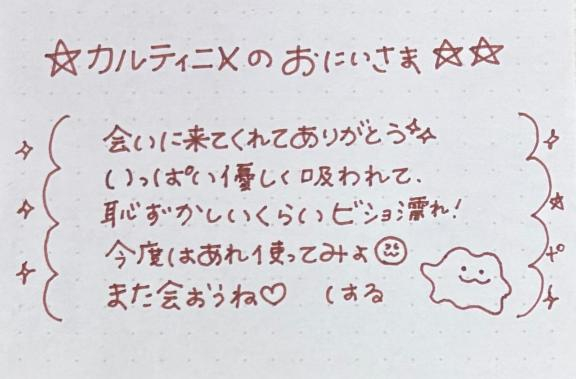 ☆カルティニXの おにいさま☆☆
会いに来てくれてありがとう
いっぱい優しく吸われて、
恥ずかしいくらいビショ濡れ!
今度はあれ使ってみよ
また会おうね♡ しする